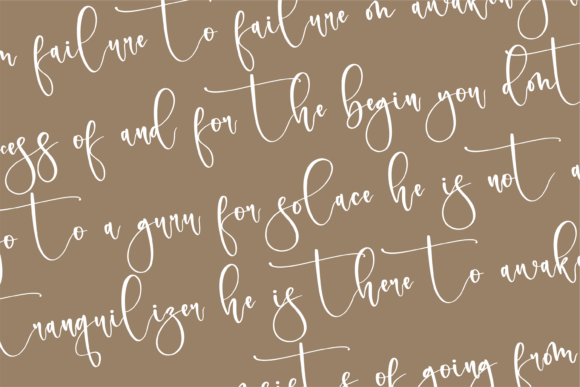 failure to failure on awaken
cess of and for the begin you dont
to a guru for solace he is not a
tranquilizer he is there to awak
sists of going from